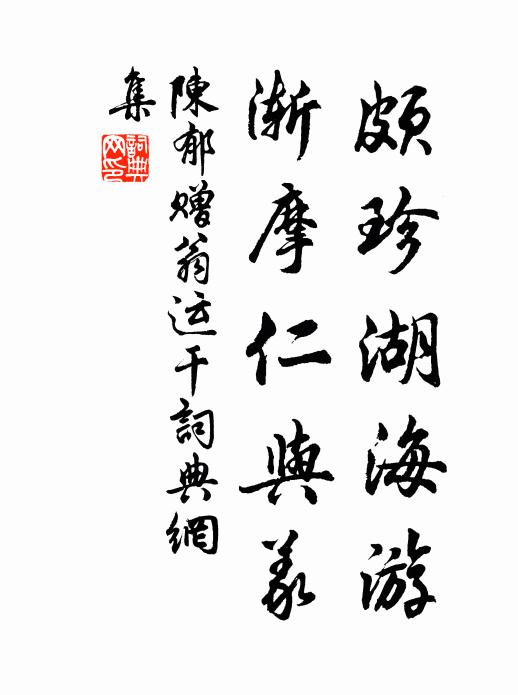 頗珍湖海游
漸摩仁與義
陳郁赠翁运干詞典網
集
詞典
网印